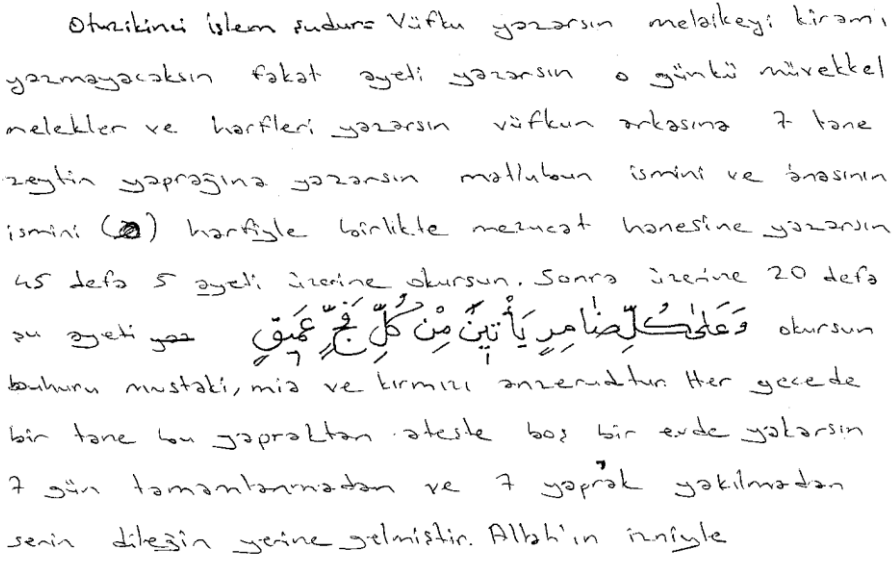 Otuzikinci işlem şudur= Vüfku yazarsın melaikeyi kiramı
yazmayacaksın fakat ayeti yazarsın o günkü müvekkel
melekler ve harfleri yazarsın vüfkun arkasına 7 tane
zeytin yaprağına yazarsın matlubun ismini ve anasının
ismini ( ) harfiyle birlikte mezucat hanesine yazarsın
45 defa 5 ayeti üzerine okursun. Sonra üzerine 20 defa
şu ayeti وَعَلىٰ كُلِّ ضَامِرٍ يَأْتِينَ مِنْ كُلِّ فَجٍّ عَمِيقٍ okursun
buhuru mustaki, mia ve kırmızı anzeruttur. Her gecede
bir tane bu yapraktan ateşle boş bir evde yakarsın
7 gün tamamlanmadan ve 7 yaprak yakılmadan
senin dileğin yerine gelmiştir. Allah'ın izniyle